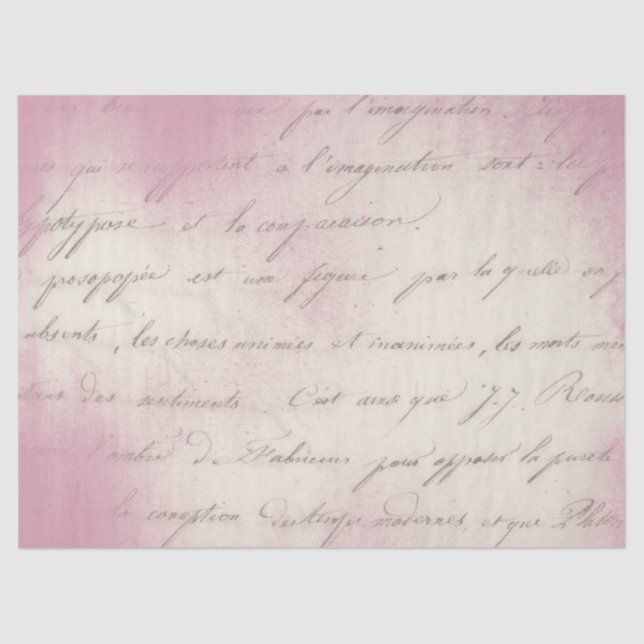 par l'imagination. Les
qui se rapportent à l'imagination sont : la
hypotypose et la comparaison.
prosopopée est une figure par la quelle on
absents, les choses animées et inanimées, les morts
des sentiments. C'est ainsi que J. J. Rouss
l'ombre de Fabricius pour opposer la pureté
la coruption des temps modernes, et que